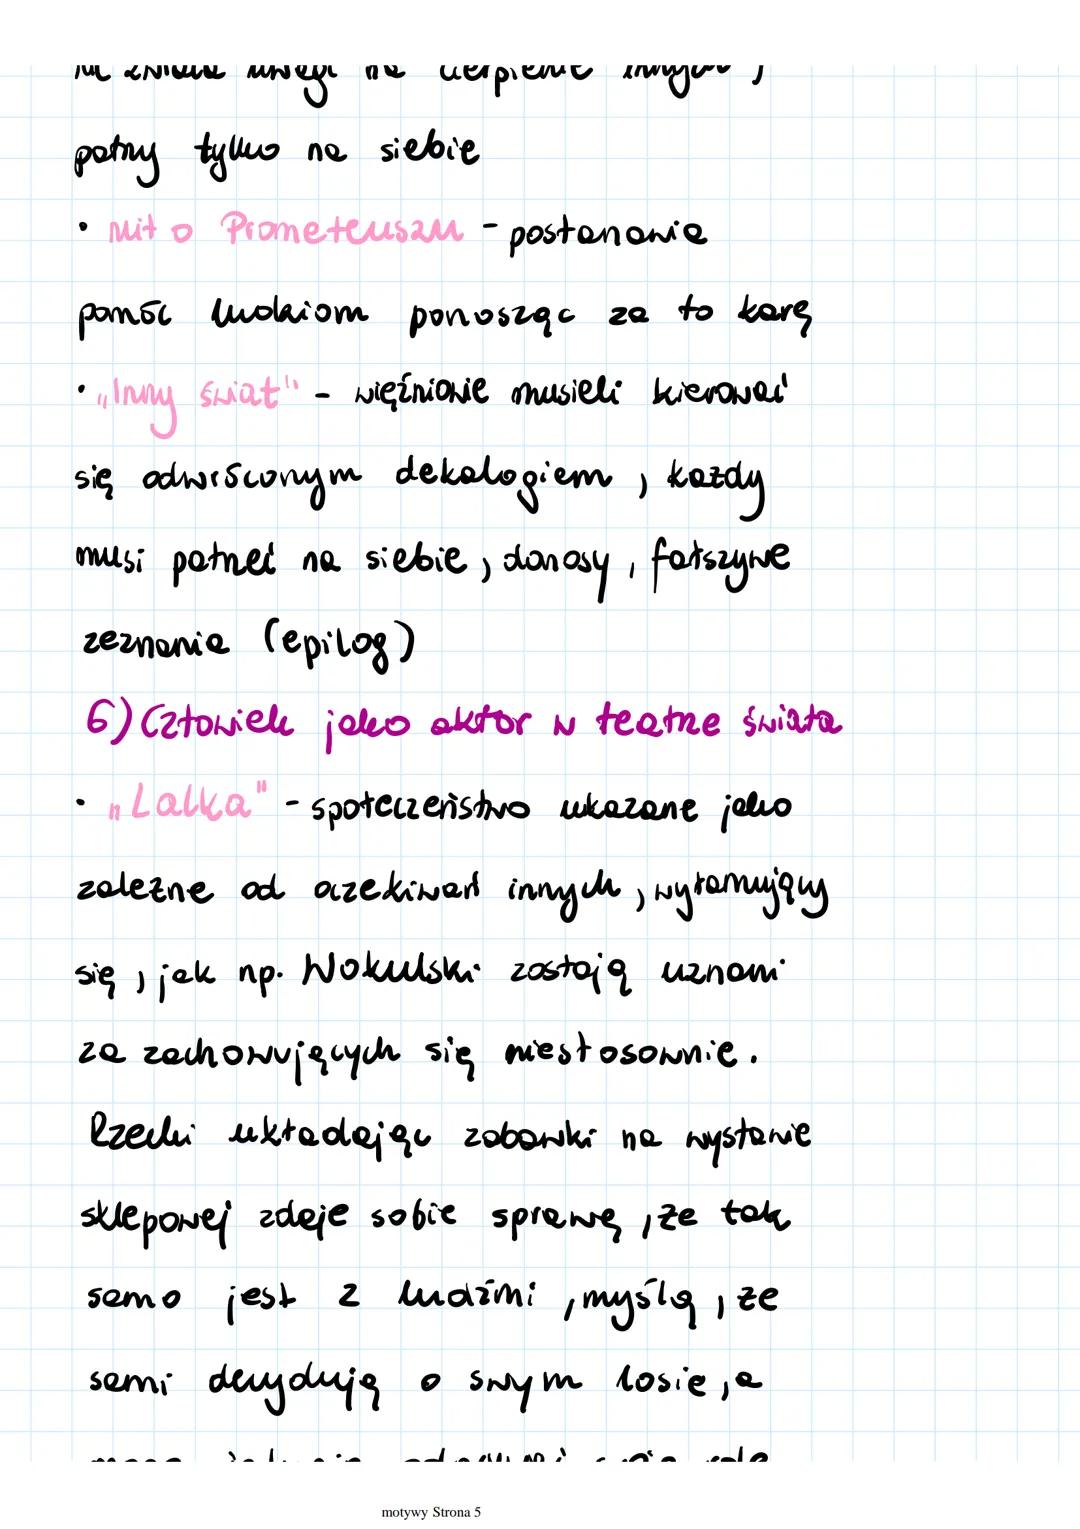 nie zwraca uwagi na cierpienie innych,
patrzy tylko na siebie
• mit o Prometeuszu - postanawia
pomóc ludziom ponosząc za to karę
• „Inny świat" - więźniowie musieli kierować
się odwróconym dekalogiem, każdy
musi patrzeć na siebie, donosy, fałszywe
zeznania (epilog)
6) Człowiek jako aktor w teatrze świata
• „Lalka" - społeczeństwo ukazane jako
zależne od oczekiwań innych, wyłamujący
się, jak np. Wokulski zostają uznani
za zachowujących się niestosownie.
Rzecki układając zabawki na wystawie
sklepowej zdaje sobie sprawę, że tak
samo jest z ludźmi, myślą, że
sami decydują o swym losie, a
motywy Strona 5